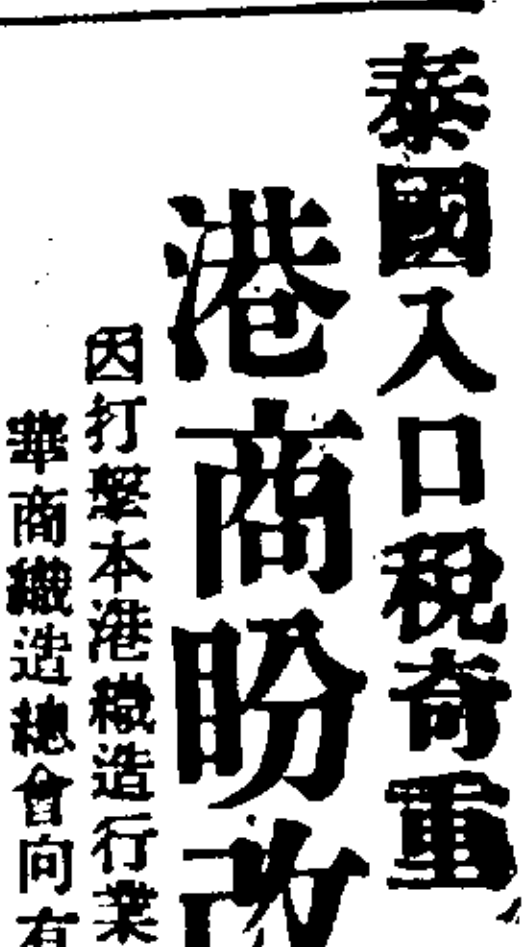 泰國入口稅奇重
港商盼改
因打擊本港織造行業
華商織造總會向有